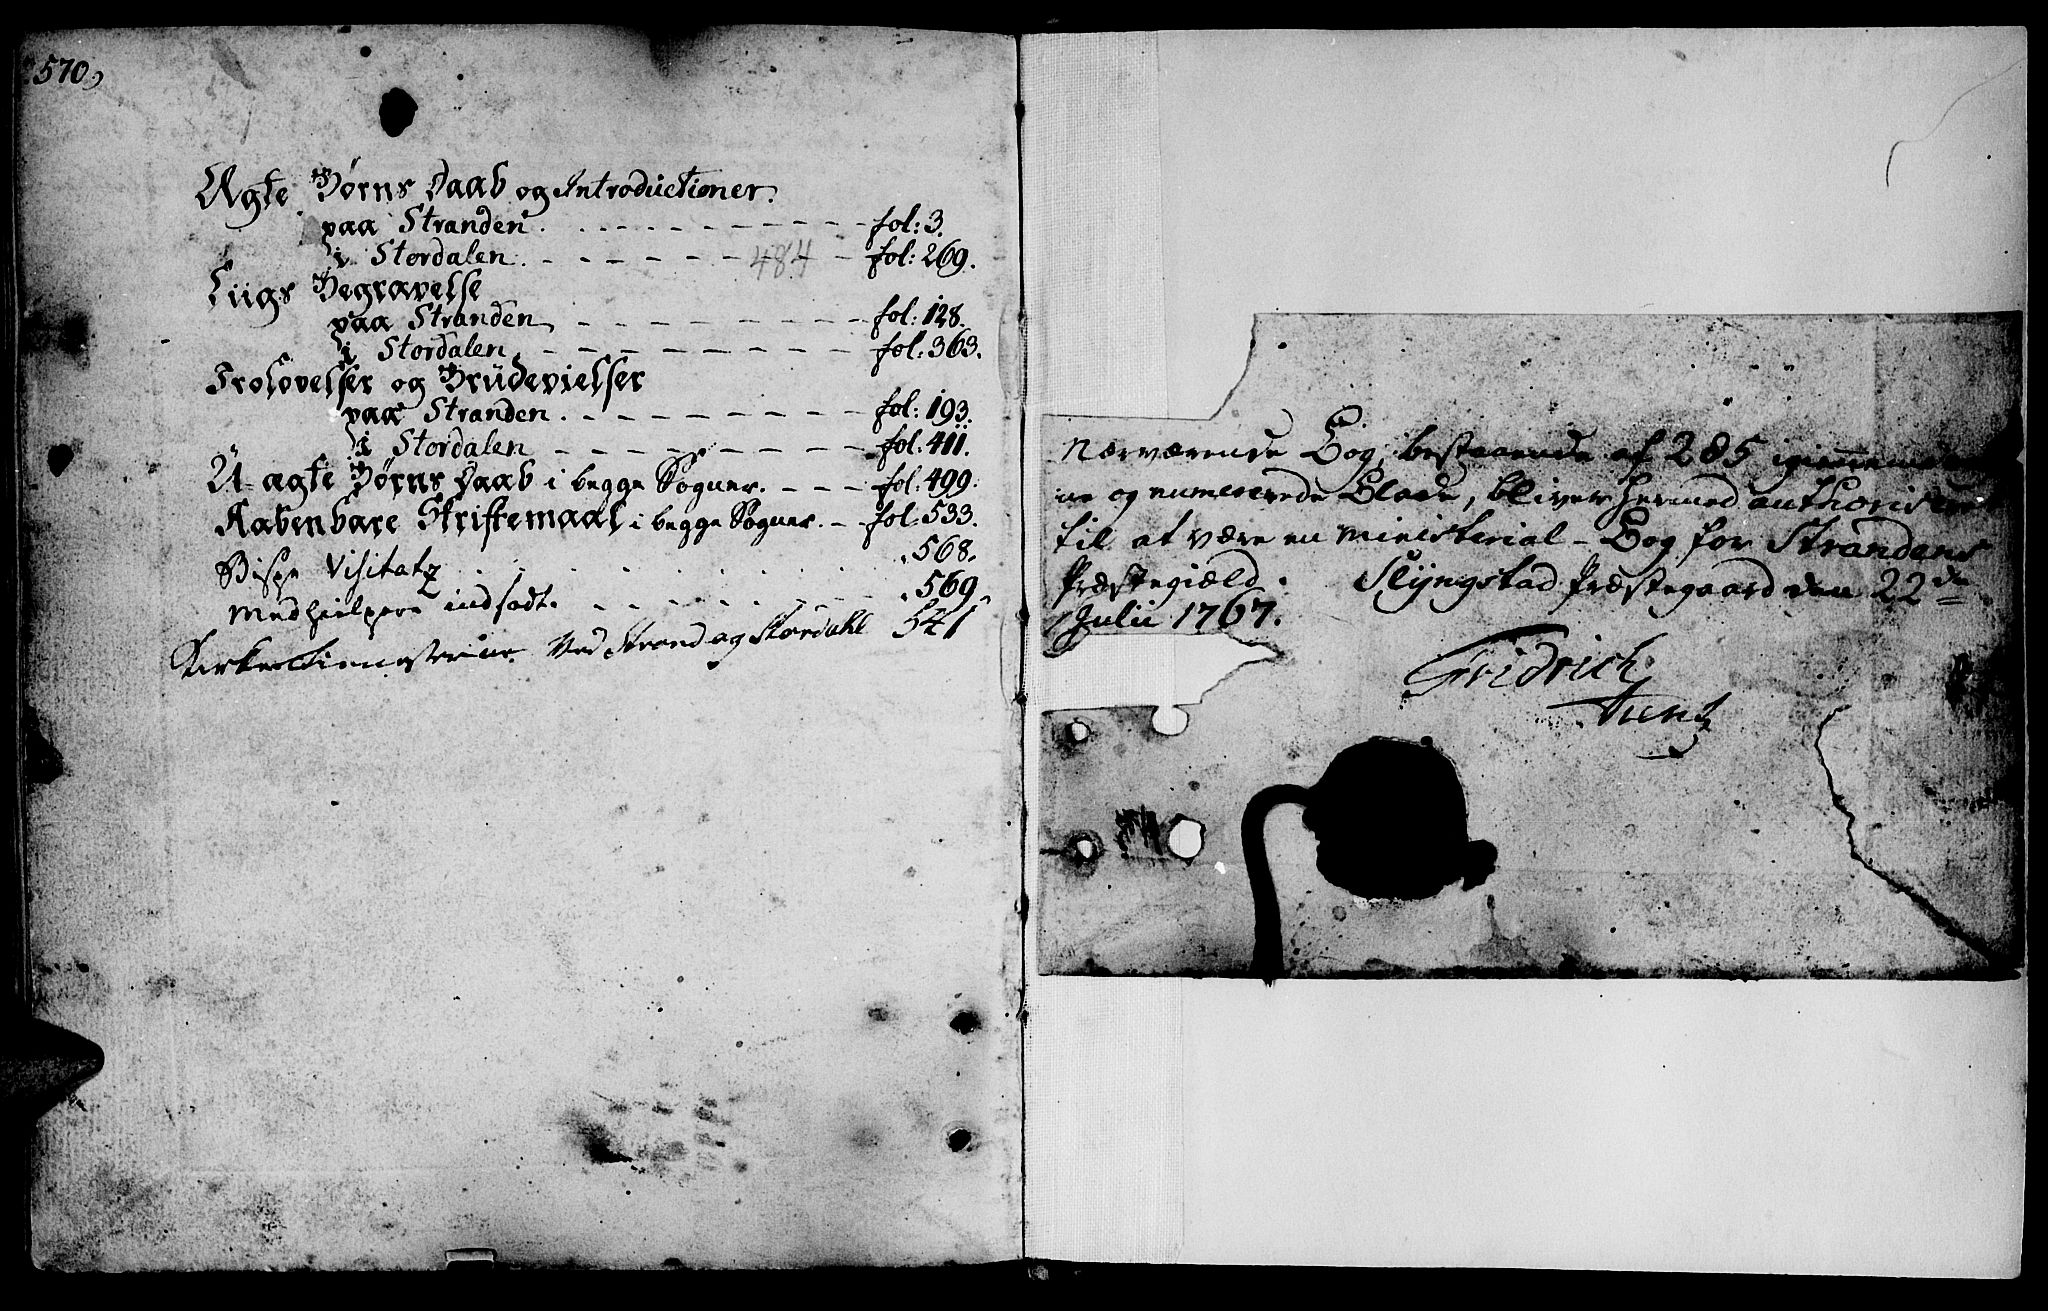 570,
Ægte Børns Daab og Introductioner.
paa Stranden. - - - - - - - - - fol: 3.
i Stordalen. - - - - - - - - - fol: 269.
484
Liigs Begravelse
paa Stranden, - - - - - - - - - fol: 128.
i Stordalen, - - - - - - - - - fol: 363.
Trolovelser og Brüdevielser
paa Stranden. - - - - - - - - - fol: 193.
i Stordalen - - - - - - - - - fol. 411.
U-ægte Børns Daab i begge Sogner. - - - fol: 499.
Aabenbare Skriftemaal i begge Sogner. - fol. 533.
Bispe Visitatz . . . . . . . . . 568.
Medhielpere indsadt. - - - - - - - - - 569.
Kirke ved Strand og Stordahl 541
Nærværende Bog, bestaaende af 285
ne og numererede Blade, bliver hermed authoriseret
til at være en Ministerial-Bog for Strandens
Præstegield. Slyngstad Præstegaard den 22de
Julii 1767.
Fridrich